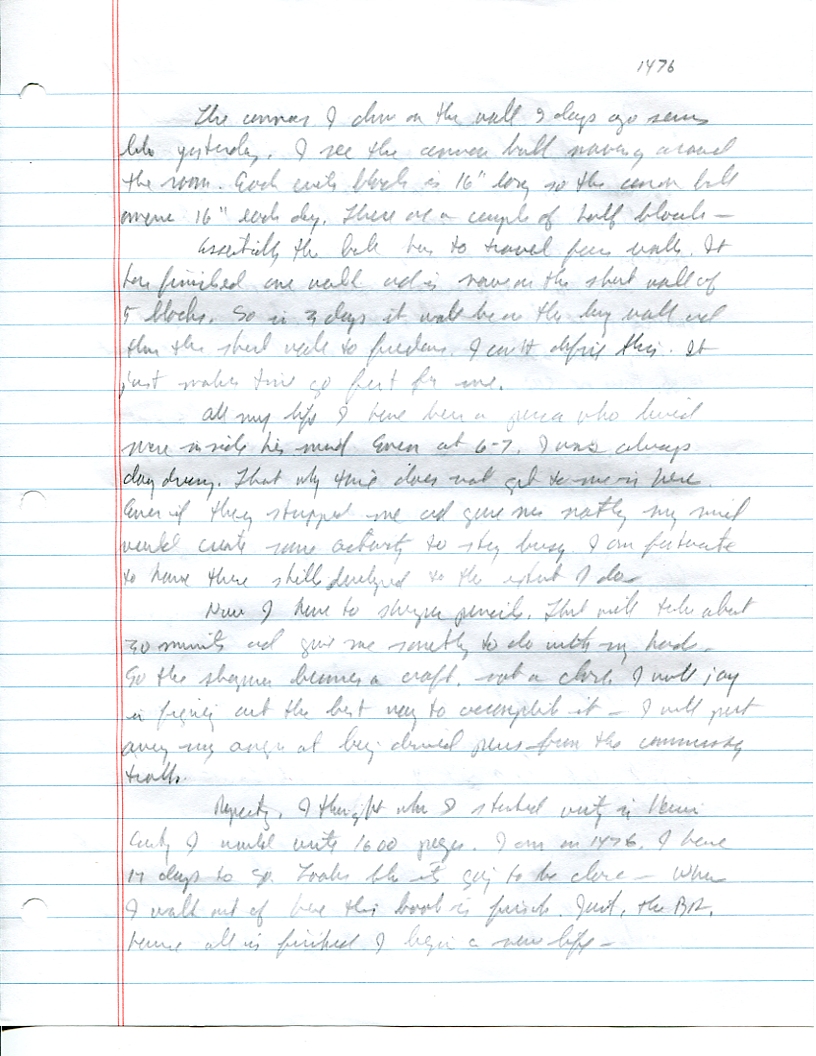 1476
The cannon I drew on the wall 9 days ago seems
like yesterday. I see the cannon ball moving around
the room. Each block is 16" long so the cannon ball
moves 16" each day. There are a couple of half blocks –
Essentially the ball has to travel four walls. It
has finished one wall and is now on the short wall of
5 blocks. So in 3 days it will be on the long wall and
then the short walk to freedom. I can't define this. It
just makes time go fast for me.
All my life I have been a person who lived
more inside his mind. Even at 6-7, I was always
day dreaming. That why time does not get to me in here.
Even if they stripped me and gave me nothing my mind
would create some activity to stay busy. I am fortunate
to have these skills developed to the extent I do
Now I have to sharpen pencils. That will take about
30 minutes and give me something to do with my hands.
So the sharpener becomes a craft, not a chore. I will joy
in figuring out the best way to accomplish it – I will put
away my anger at being denied pens from the commissary
I thought when I started writing in
County I would write 1600 pages. I am on 1476. I have
17 days to go. Looks like its going to be close – When
I walk out of here this book is finish. the
all is finished I begin a new life –